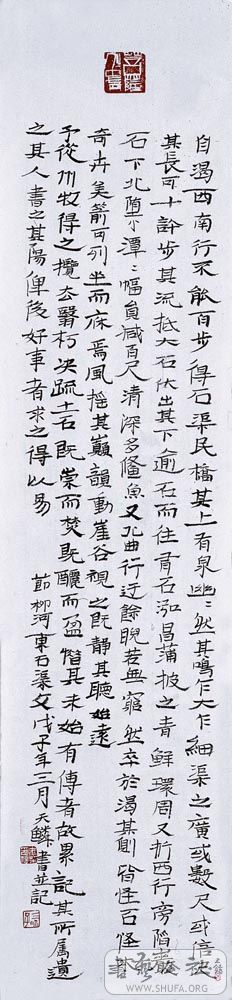 自渴西南行不能百步得石渠民橋其上有泉幽〻然其鳴乍大乍細渠之廣或數尺或倍尺
其長可十許步其流抵大石伏出其下逾石而往有石泓昌蒲披之青鮮環周又折西行旁陷巖
石下北墮小潭〻幅員減百尺清深多鯈魚又北曲行迂餘睨若無窮然卒於渴其側皆怪石怪木
奇卉美箭可列坐而庥焉風搖其巔韻動崖谷視之既靜其聽始遠
予從州牧得之攬去翳朽決疏土石既崇而焚既釃而盈惜其未始有傳者故累記其所屬遺
之其人書之其陽俾後好事者求之得以易
節柳河東石渠文戊子年三月天鱗書並記
WWW.SHUFA.ORG